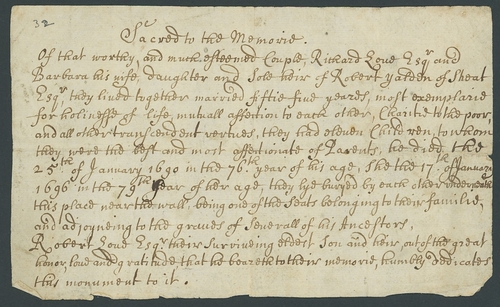 32
Sc
Sacred to the Memorie.
Of that worthy, and much esteemed Couple, Richard Love Esqr and
Barbara his wife, daughter and Sole heir of Robert Yalden of Sheat
Esqr, they lived together married fiftie five yeares, most exemplarie
for holinesse of life, mutuall affection to each other, Charitie to the poor,
and all other transcendent vertues, they had eleven Children, to whom
they were the best and most affectionate of Parents, he died the
25th of January 1690 in the 76th year of his age, She the 17th of January
1696 in the 79th year of her age, they lye buryed by each other underneath
this place near the wall, being one of the Seats belonging to their familie,
and adjoyneing to the graves of Severall of his Ancestors,
Robert Love Esqr their Surviveing eldest Son and heir, out of the great
honor, love and gratitude that he beareth to their memorie, humbly dedicates
this monument to it.